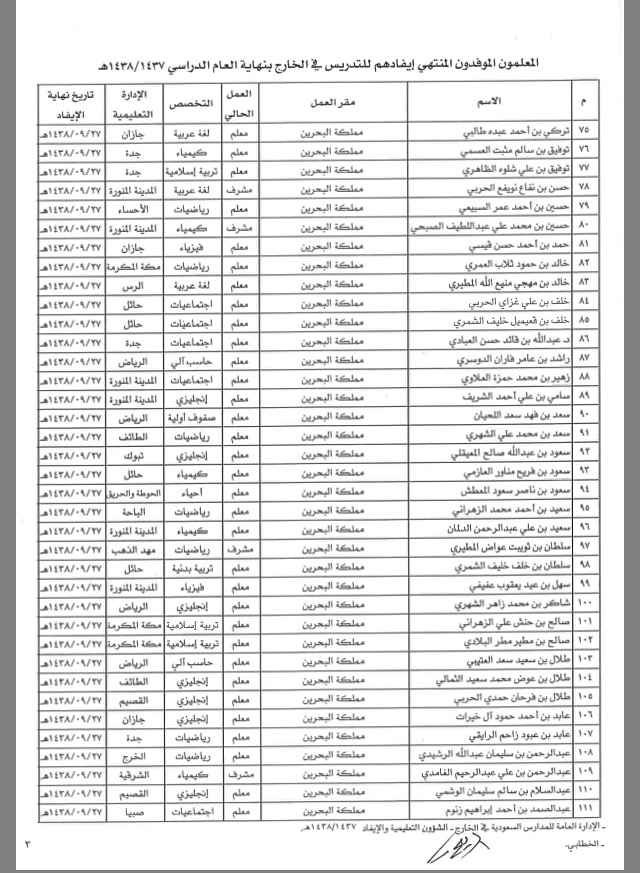 المعلمون الموفدون المنتهي إيفادهم للتدريس في الخارج بنهاية العام الدراسي ١٤٣٨/١٤٣٧هـ
م الاسم مقر العمل العمل الحالي التخصص الإدارة التعليمية تاريخ نهاية الإيفاد
٧٥ تركي بن أحمد عبده طالبي مملكة البحرين معلم لغة عربية جازان ١٤٣٨/٠٩/٢٧هـ
٧٦ توفيق بن سالم مثبت العسمي مملكة البحرين معلم كيمياء جدة ١٤٣٨/٠٩/٢٧هـ
٧٧ توفيق بن علي شلوه الظاهري مملكة البحرين معلم تربية إسلامية جدة ١٤٣٨/٠٩/٢٧هـ
٧٨ حسن بن نفاع نويفع الحربي مملكة البحرين مشرف لغة عربية المدينة المنورة ١٤٣٨/٠٩/٢٧هـ
٧٩ حسين بن أحمد عمر السبيعي مملكة البحرين معلم رياضيات الأحساء ١٤٣٨/٠٩/٢٧هـ
٨٠ حسين بن محمد علي عبداللطيف الصبحي مملكة البحرين مشرف كيمياء المدينة المنورة ١٤٣٨/٠٩/٢٧هـ
٨١ حمد بن أحمد حسن قيسي مملكة البحرين معلم فيزياء جازان ١٤٣٨/٠٩/٢٧هـ
٨٢ خالد بن حمود ثلاب العمري مملكة البحرين معلم رياضيات مكة المكرمة ١٤٣٨/٠٩/٢٧هـ
٨٣ خالد بن مهجي منيع الله المطيري مملكة البحرين معلم لغة عربية الرس ١٤٣٨/٠٩/٢٧هـ
٨٤ خلف بن علي غزاي الحربي مملكة البحرين معلم اجتماعيات حائل ١٤٣٨/٠٩/٢٧هـ
٨٥ خلف بن قعيميل خليف الشمري مملكة البحرين معلم اجتماعيات حائل ١٤٣٨/٠٩/٢٧هـ
٨٦ د. عبدالله بن قائد حسن العبادي مملكة البحرين معلم اجتماعيات جدة ١٤٣٨/٠٩/٢٧هـ
٨٧ راشد بن عامر فاران الدوسري مملكة البحرين معلم حاسب آلي الرياض ١٤٣٨/٠٩/٢٧هـ
٨٨ زهير بن محمد حمزة العلاوي مملكة البحرين معلم اجتماعيات المدينة المنورة ١٤٣٨/٠٩/٢٧هـ
٨٩ سامي بن علي أحمد الشريف مملكة البحرين معلم إنجليزي المدينة المنورة ١٤٣٨/٠٩/٢٧هـ
٩٠ سعد بن فهد سعد اللحيان مملكة البحرين معلم صفوف أولية الرياض ١٤٣٨/٠٩/٢٧هـ
٩١ سعد بن محمد علي الشهري مملكة البحرين معلم رياضيات الطائف ١٤٣٨/٠٩/٢٧هـ
٩٢ سعود بن عبدالله صالح المعيقلي مملكة البحرين معلم إنجليزي تبوك ١٤٣٨/٠٩/٢٧هـ
٩٣ سعود بن فريح مناور العازمي مملكة البحرين معلم كيمياء حائل ١٤٣٨/٠٩/٢٧هـ
٩٤ سعود بن ناصر سعود المعطش مملكة البحرين معلم أحياء الحوطة والحريق ١٤٣٨/٠٩/٢٧هـ
٩٥ سعيد بن أحمد محمد الزهراني مملكة البحرين معلم رياضيات الباحة ١٤٣٨/٠٩/٢٧هـ
٩٦ سعيد بن علي عبدالرحمن الدلمان مملكة البحرين معلم كيمياء المدينة المنورة ١٤٣٨/٠٩/٢٧هـ
٩٧ سلطان بن ثويبت عواض المطيري مملكة البحرين مشرف رياضيات مهد الذهب ١٤٣٨/٠٩/٢٧هـ
٩٨ سلطان بن خلف خليف الشمري مملكة البحرين معلم تربية بدنية حائل ١٤٣٨/٠٩/٢٧هـ
٩٩ سهل بن عيد يعقوب عفيفي مملكة البحرين معلم فيزياء المدينة المنورة ١٤٣٨/٠٩/٢٧هـ
١٠٠ شاكر بن محمد زاهر الشهري مملكة البحرين معلم إنجليزي الرياض ١٤٣٨/٠٩/٢٧هـ
١٠١ صالح بن حنش علي الزهراني مملكة البحرين معلم تربية إسلامية مكة المكرمة ١٤٣٨/٠٩/٢٧هـ
١٠٢ صالح بن مطير مطر البلادي مملكة البحرين معلم تربية إسلامية مكة المكرمة ١٤٣٨/٠٩/٢٧هـ
١٠٣ طلال بن سعيد سعد العتيبي مملكة البحرين معلم حاسب آلي الرياض ١٤٣٨/٠٩/٢٧هـ
١٠٤ طلال بن عوض محمد سعيد الثمالي مملكة البحرين معلم إنجليزي الطائف ١٤٣٨/٠٩/٢٧هـ
١٠٥ طلال بن فرحان حمدي الحربي مملكة البحرين معلم إنجليزي القصيم ١٤٣٨/٠٩/٢٧هـ
١٠٦ عابد بن أحمد حمود آل خيرات مملكة البحرين معلم إنجليزي جازان ١٤٣٨/٠٩/٢٧هـ
١٠٧ عابد بن عبود زاحم الرايقي مملكة البحرين معلم رياضيات جدة ١٤٣٨/٠٩/٢٧هـ
١٠٨ عبدالرحمن بن سليمان عبدالله الرشيدي مملكة البحرين معلم رياضيات الخرج ١٤٣٨/٠٩/٢٧هـ
١٠٩ عبدالرحمن بن علي عبدالرحيم الغامدي مملكة البحرين مشرف كيمياء الشرقية ١٤٣٨/٠٩/٢٧هـ
١١٠ عبدالسلام بن سالم سليمان الوشمي مملكة البحرين معلم إنجليزي القصيم ١٤٣٨/٠٩/٢٧هـ
١١١ عبدالصمد بن أحمد إبراهيم زنوم مملكة البحرين معلم اجتماعيات صبيا ١٤٣٨/٠٩/٢٧هـ
ـ الإدارة العامة للمدارس السعودية في الخارج ـ الشؤون التعليمية والإيفاد ١٤٣٨/١٤٣٧هـ.
ـ الخطابي.
٣